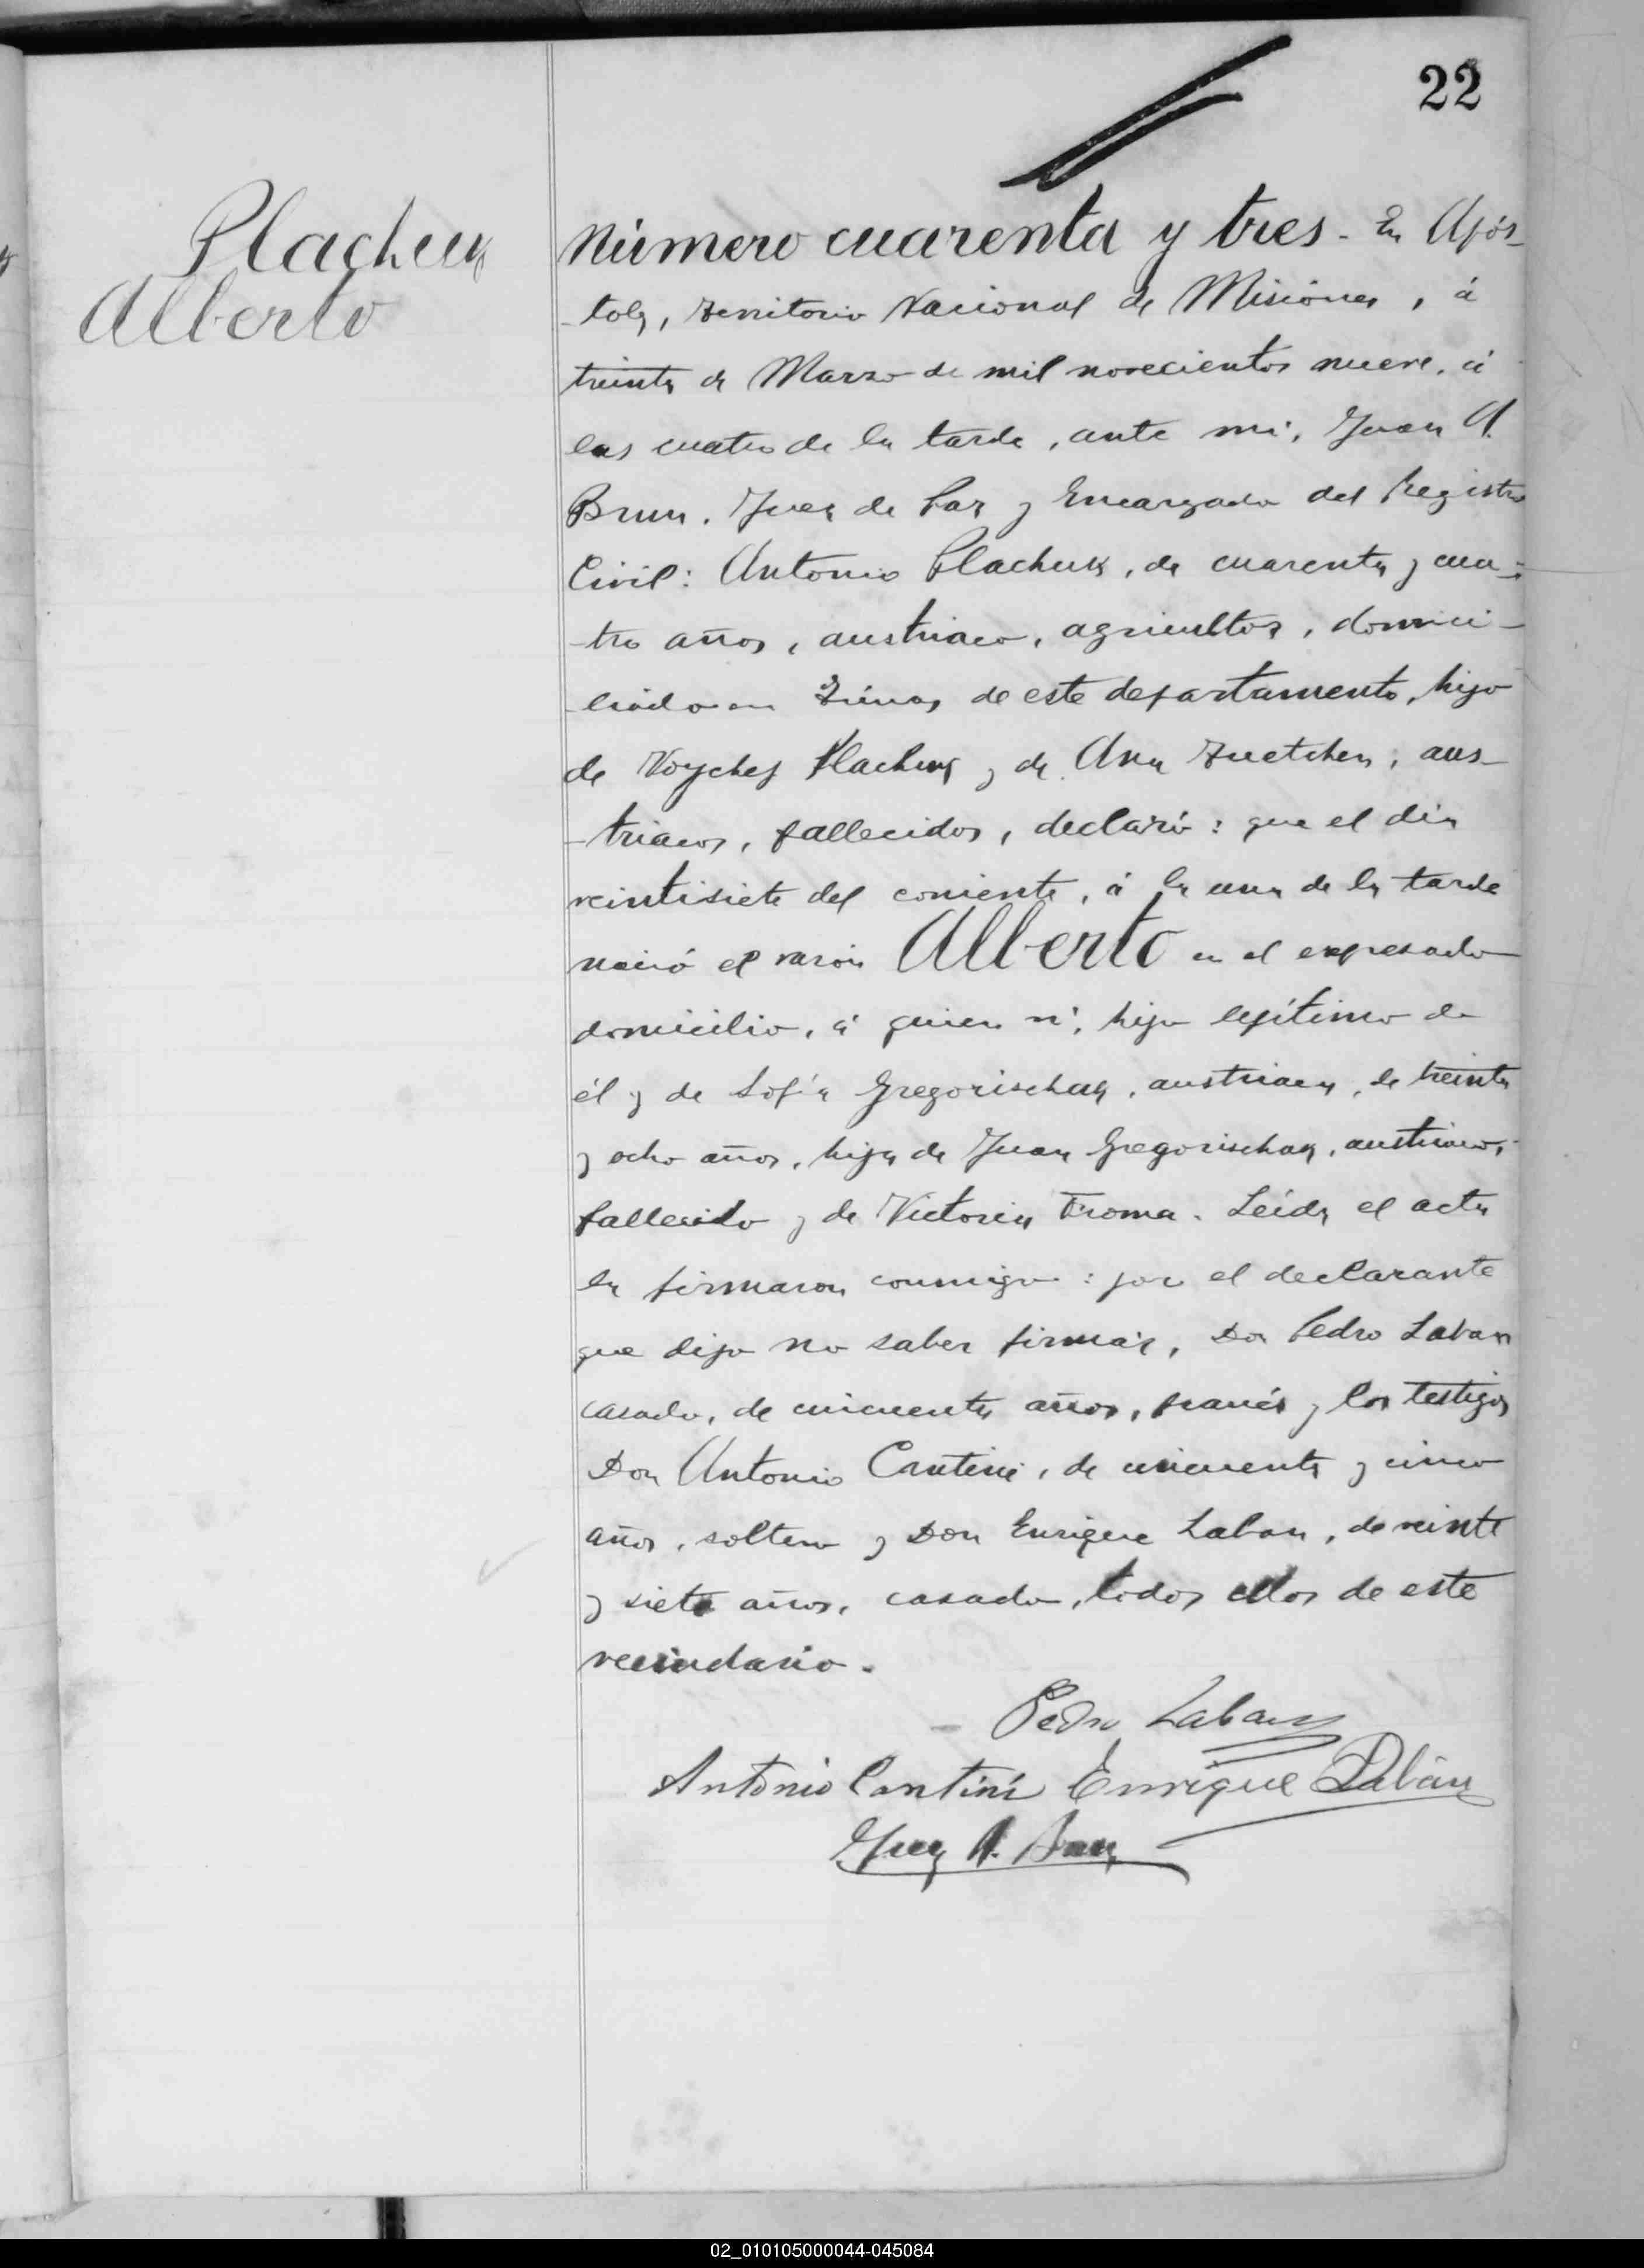 22
Plachuk
Alberto
Número cuarenta y tres. En Após-
-toles, Territorio Nacional de Misiones, á
treinta de Marzo de mil novecientos nueve, á
las cuatro de la tarde, ante mi, Juan A.
Brun, Juez de Paz y Encargado del Registro
Civil: Antonio Plachuk, de cuarenta y cua-
-tro años, austriaco, agricultor, domici-
-liado en de este departamento, hijo
de Voyches Plachuk y de Ana , aus-
-triacos, fallecidos, declaró: que el dia
veintisiete del corriente, á la una de la tarde
nació el varón Alberto en el expresado
domicilio, á quien vi, hijo legítimo de
él y de Sofía Gregorischuk, austriaca, de treinta
y ocho años, hija de Juan Gregorischak, austriaco,
fallecido y de Victoria Froma. Leída el acta
la firmaron conmigo: por el declarante
que dijo no saber firmar, Don Pedro Laban
casado, de cincuenta años, francés y los testigos
Don Antonio Cantini, de cincuenta y cinco
años, soltero y Don Enrique Laban, de veinte
y siete años, casado, todos ellos de este
vecindario.
Pedro Laban
Antonio Cantini Enrique Labán
Juan A. Brun
02_010105000044-045084